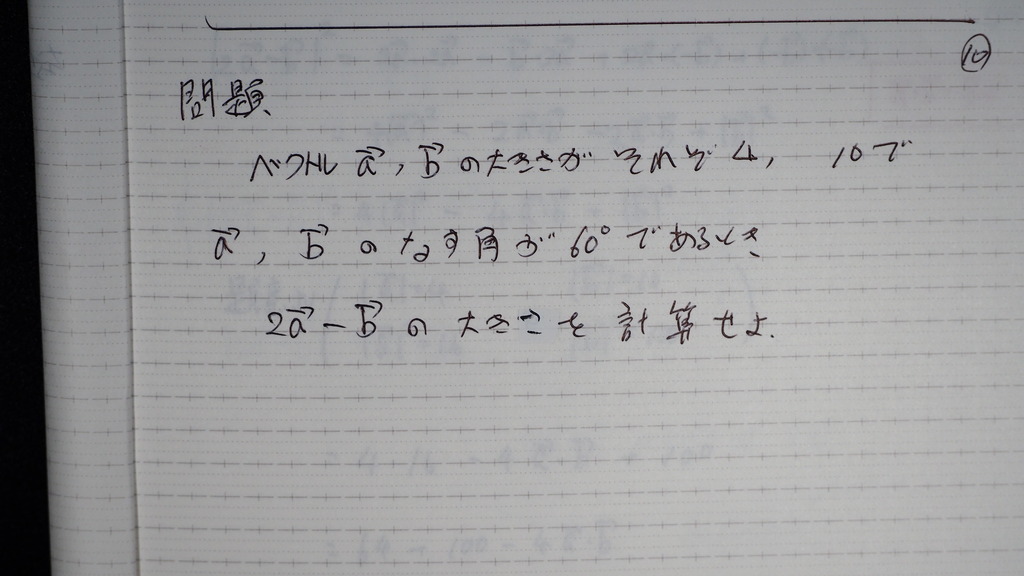 ⑩
問題
ベクトル a→, b→ の大きさが それぞれ 4, 10で
a→, b→ の なす角が 60° であるとき
2a→ - b→ の 大きさを 計算せよ.